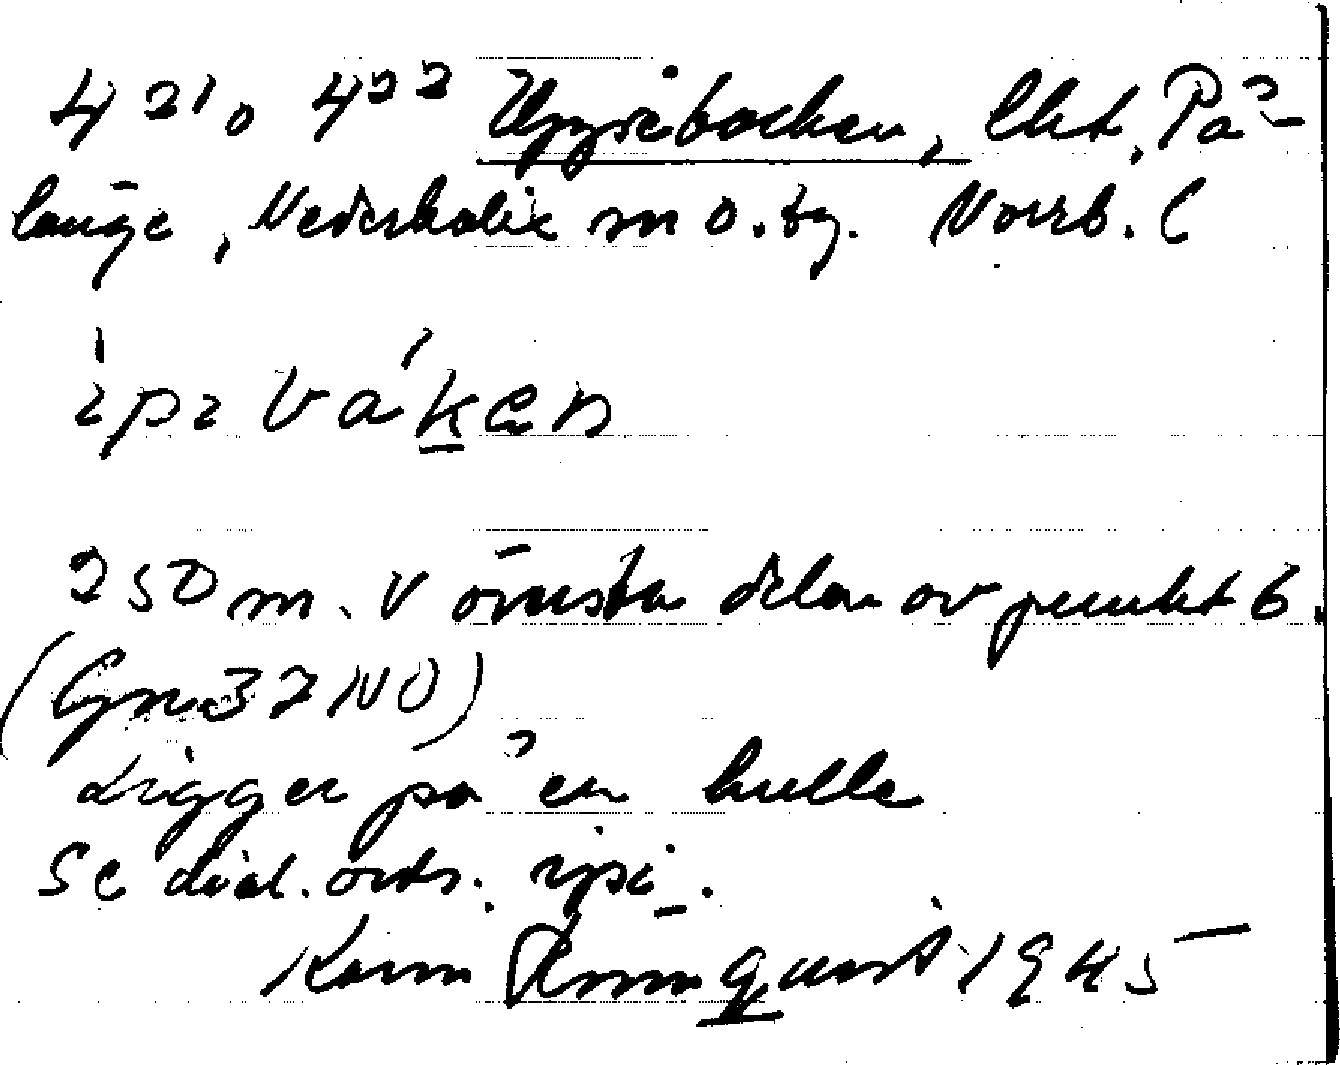 421 o 422 Uppiebacken, Ckt, På-
länge, Nederkalix sn o. tg. Norrb. l
ipi bákən
250 m. V översta delen av punkt 6.
(Gen 37 NO)
Ligger på en kulle
Se dial. ords. ipi -.
Karin 1945